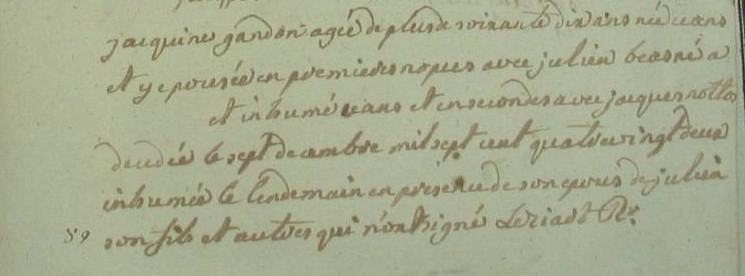 jacquine gandon agée de plus de soixante dix ans née ceans
et y epousée en premieres nopces avec julien besné a
et inhumé ceans et en secondes avec jacques nottos
decedée le sept decembre mil sept cent quatrevingt deux
inhumée le lendemain en presence de son epoux de julien
59 son fils et autres qui n'ont signé Leriast Rr